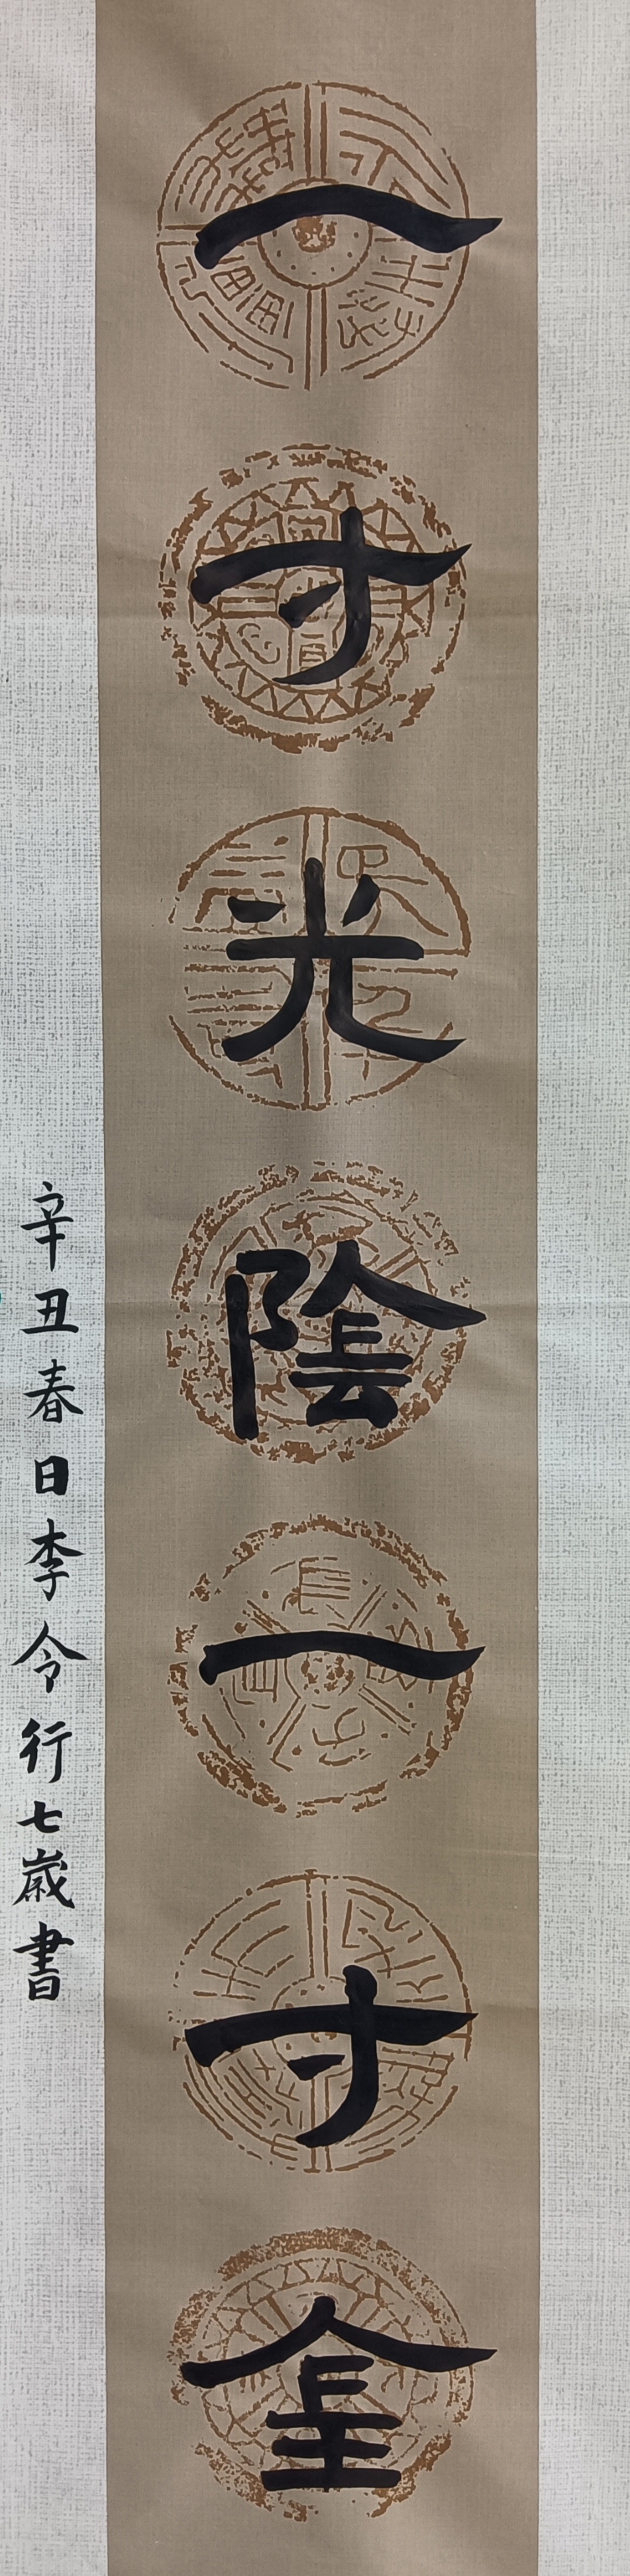 一寸光陰一寸金
辛丑春日李令行七歲書